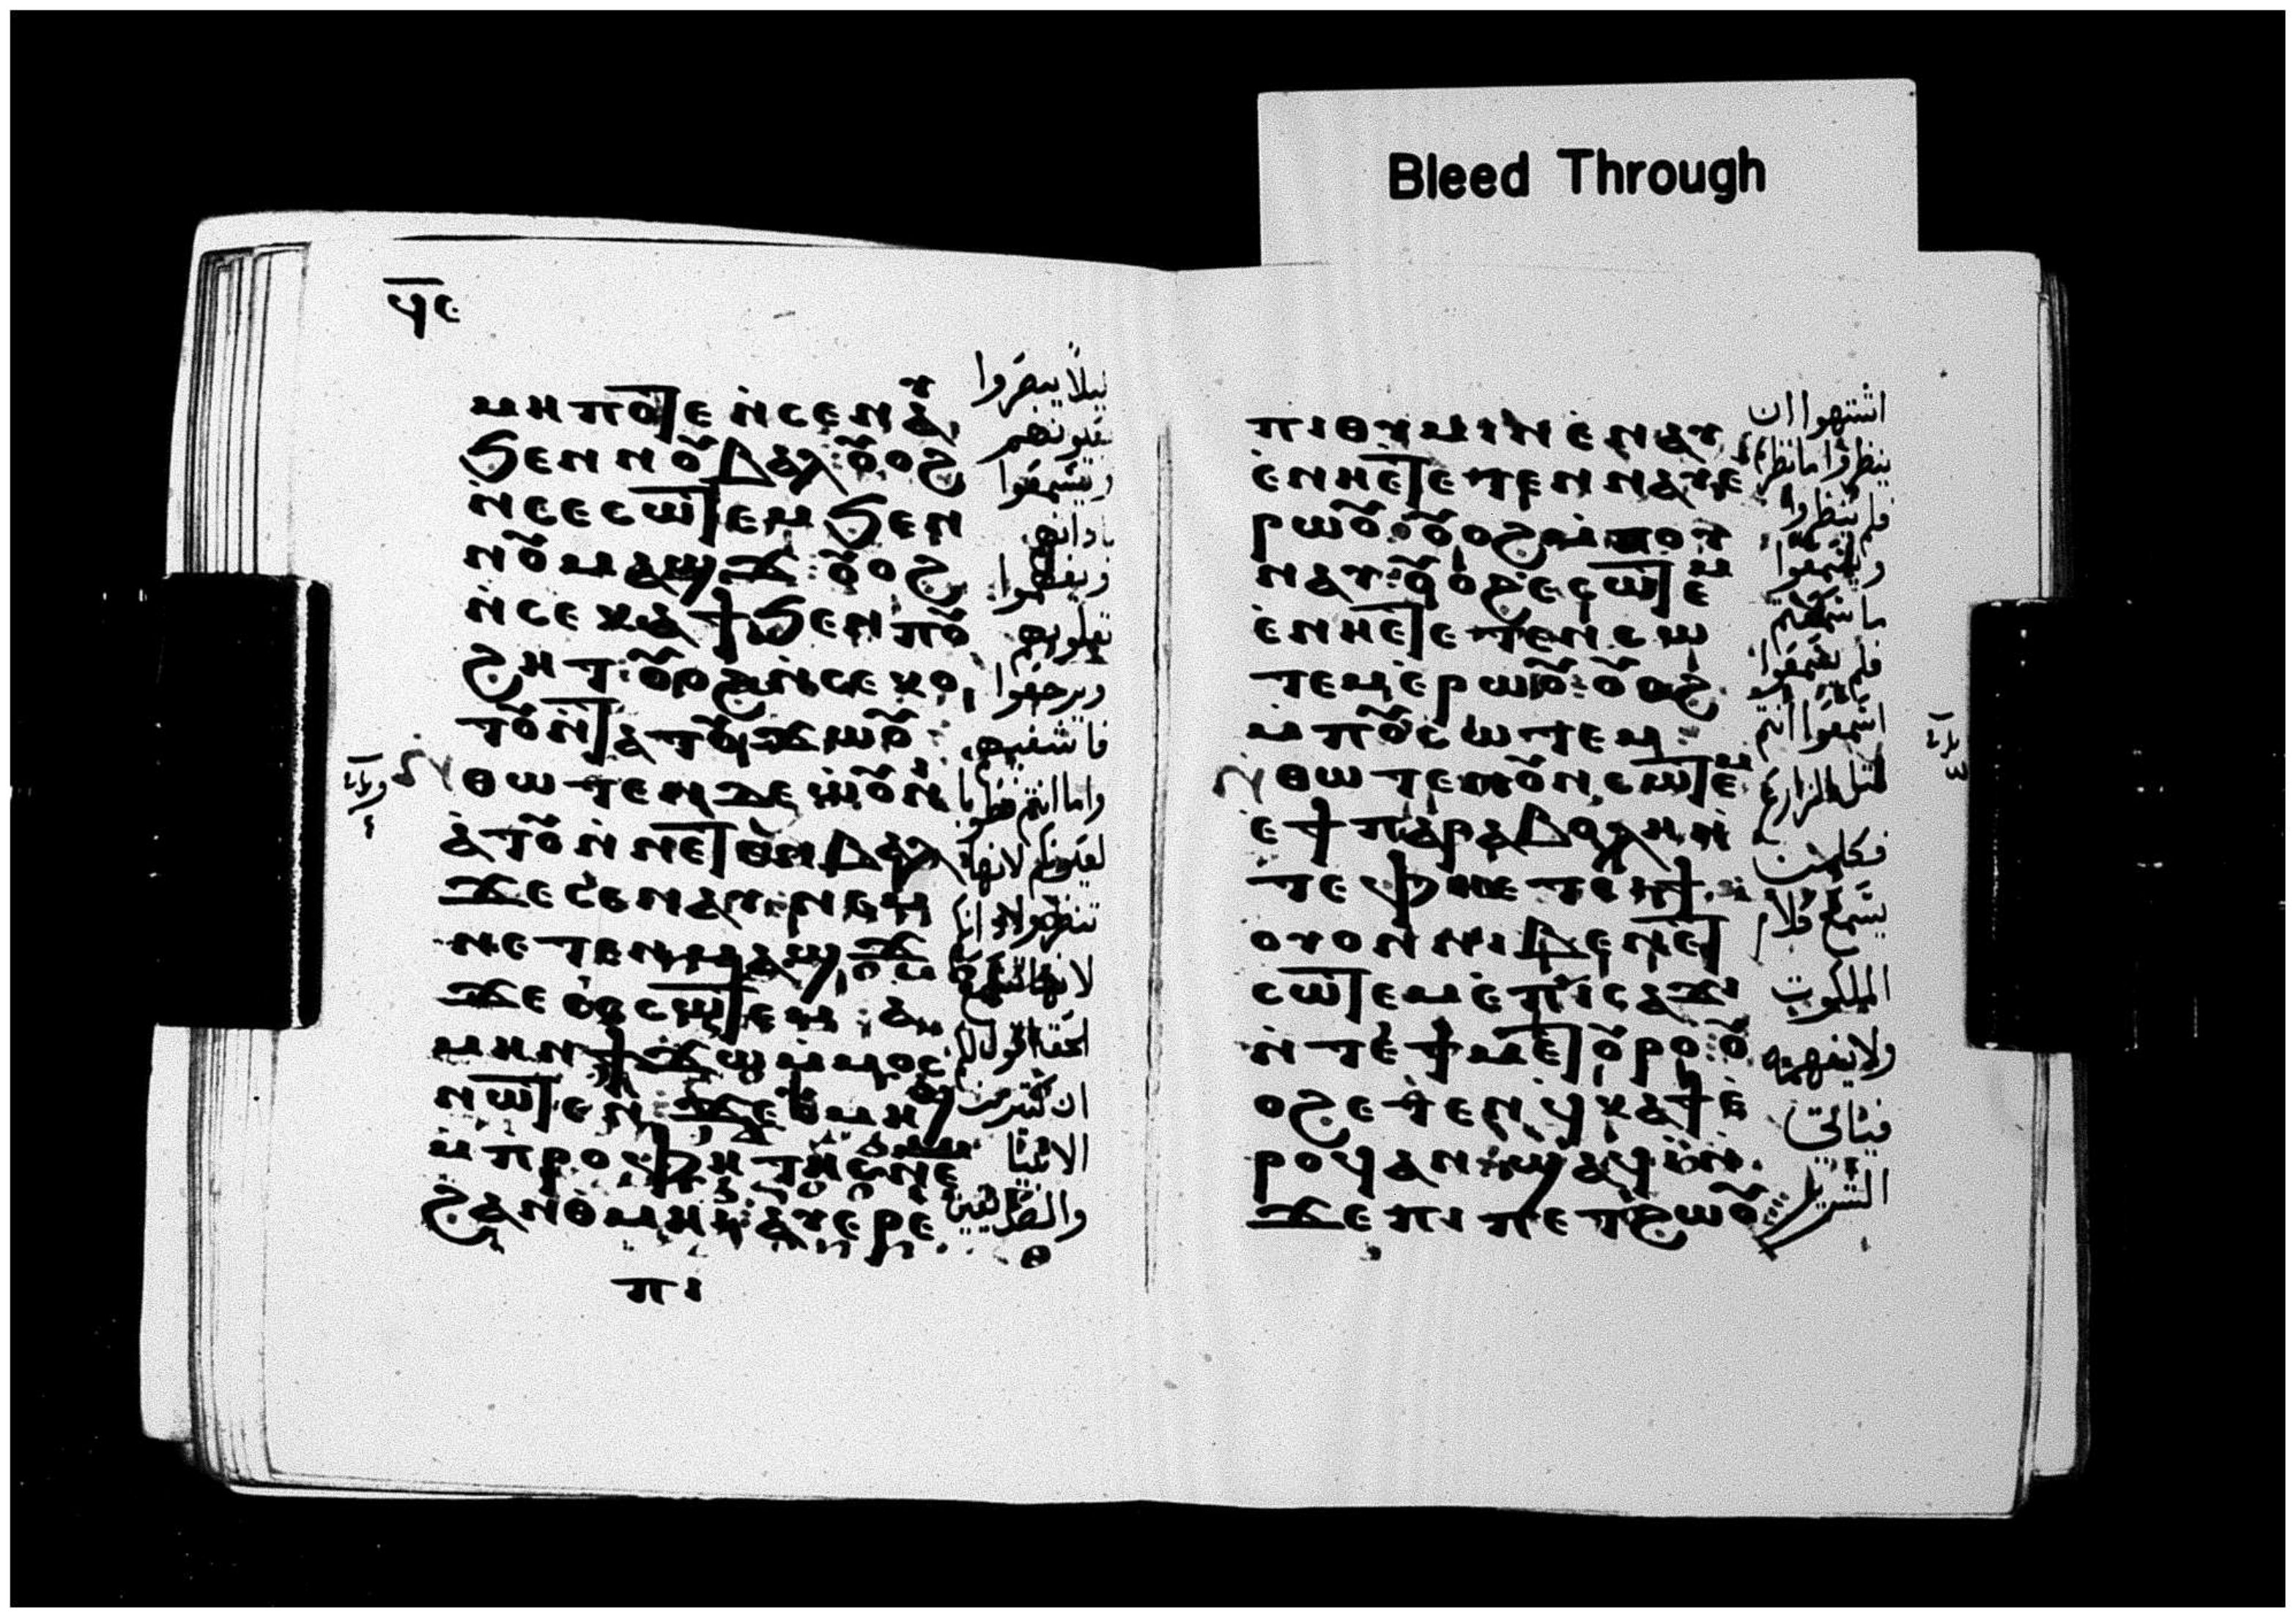 Bleed Through
ϥⲉ
ⲙⲏⲡⲟⲧⲉ ⲛ̀ⲥⲉⲛⲁⲩ
ϧⲉⲛ ⲛⲟⲩⲃⲁⲗ ⲟⲩⲟϩ
ⲛ̀ⲥⲉⲥⲱⲧⲉⲙ ϧⲉⲛ
ⲛⲟⲩⲙⲁϣϫ ⲟⲩⲟϩ
ⲛ̀ⲥⲉⲕⲁϯ ϧⲉⲛ ⲡⲟⲩ
ϩⲏⲧ ⲟⲩⲟϩ ⲛ̀ⲥⲉⲕⲟ
ⲧⲟⲩ ⲛ̀ⲧⲁⲧⲟⲩϫⲱⲟⲩ
ⲑⲱⲧⲉⲛ ⲇⲉ ⲱⲟⲩⲛⲓ
ⲁ̀ⲧⲟⲩ ⲛ̀ⲛⲉⲧⲉⲛⲃⲁⲗ
ϫⲉ ⲥⲉⲛⲁⲩ ⲛⲉⲙ
ⲛⲉⲧⲉⲛⲙⲁϣϫ
ϫⲉ ⲥⲉⲥⲱⲧⲉⲙ ⲁ
ⲙⲏⲛ ϯϫⲱ ⲙ̀ⲙⲟⲥ
ⲛⲱⲧⲉⲛ ϫⲉ ⲟⲩⲙⲏϣ
ⲙ̀ⲡⲣⲟⲫⲏⲧⲏⲥ ⲛⲉⲙ
ϩⲁⲛⲑⲙⲏⲓ ⲁⲩⲉⲣⲉ
ⲡⲓ
ليلا يبصروا
بعيونهم
ويسمعوا
باذانهم
ويفهموا
بقلوبهم
ويرجعوا
فاشفيهم
واما انتم فطوبا
لعيونكم لانها
تنظر ولاذانكم
لانها تسمع
الحق اقول لكم
ان كثير من
الانبيا
والصديقين
ⲡⲓⲑⲩⲙⲓⲛ ⲉ̀ⲛⲁⲩ
ⲉ̀ⲛⲏⲉⲧⲉⲧⲉⲛⲛⲁⲩ ⲉ̀
ⲣⲱⲟⲩ ⲟⲩⲟϩ ⲙ̀ⲡⲟⲩ
ⲛⲁⲩ ⲟⲩⲟϩ ⲉ̀ⲥⲱⲧⲉⲙ
ⲉ̀ⲛⲏⲉⲧⲉⲧⲉⲛⲥⲱ
ⲧⲉⲙ ⲉ̀ⲣⲱⲟⲩ ⲟⲩⲟϩ
ⲙ̀ⲡⲟⲩⲥⲱⲧⲉⲙ
ⲑⲱⲧⲉⲛ ⲟⲩⲛ ⲥⲱⲧⲉⲙ
ⲉ̀ϯⲡⲁⲣⲁⲃⲟⲗⲏ ⲛ̀
ⲧⲉ ⲫⲏⲉⲧⲥⲓϯ
ⲟⲩⲟⲛ ⲛⲓⲃⲉⲛ ⲉⲧ
ⲥⲱⲧⲉⲙ ⲉ̀ⲡⲓⲥⲁϫⲓ
ⲛ̀ⲧⲉ ϯⲙⲉⲧⲟⲩⲣⲟ ⲟⲩ
ⲟϩ ⲉⲧⲉⲛϥⲕⲁϯ ⲉ̀
ⲣⲟϥ ⲁⲛ ϣⲁϥⲓ ⲛ̀
ϫⲉ ⲡⲓⲡⲉⲧϩⲱⲟⲩ
اشتهوا ان
ينظروا ما تنظرون
فلم ينظروا
ويسمعوا
ما سمعتم
فلم يسمعوا
اسمعوا انتم
مثل الزارع
فكل من
يسمع كلام
الملكوت
ولا يفهمه
فياتي
الشرير